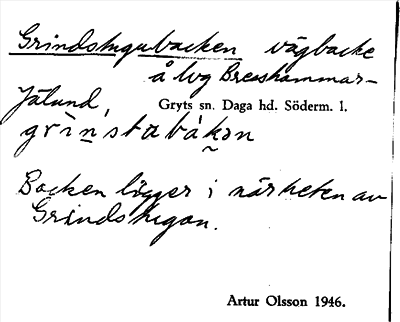 Grindstugubacken vägbacke
å lvg Bresshammar-
Jälund, Gryts sn. Daga hd. Söderm. l.
grìn̠stabák̬ən
Backen ligger i närheten av
Grindstugan.
Artur Olsson 1946.